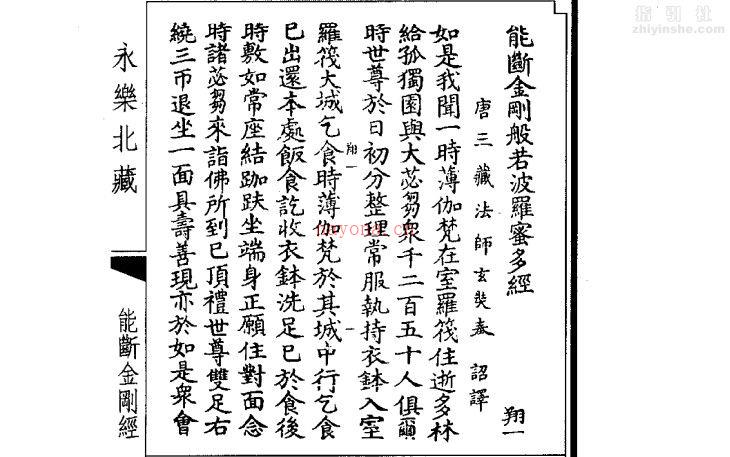 能斷金剛般若波羅蜜多經
翔一
唐三藏法師玄奘奉 詔譯
如是我聞一時薄伽梵在室羅筏住逝多林
給孤獨園與大苾芻眾千二百五十人俱爾
時世尊於日初分整理常服執持衣鉢入室
翔一
羅筏大城乞食時薄伽梵於其城中行乞食
已出還本處飯食訖收衣鉢洗足已於食後
時敷如常座結跏趺坐端身正願住對面念
時諸苾芻來詣佛所到已頂禮世尊雙足右
繞三帀退坐一面具壽善現亦於如是眾會
永樂北藏
能斷金剛經
指引社
zhiyinshe.com